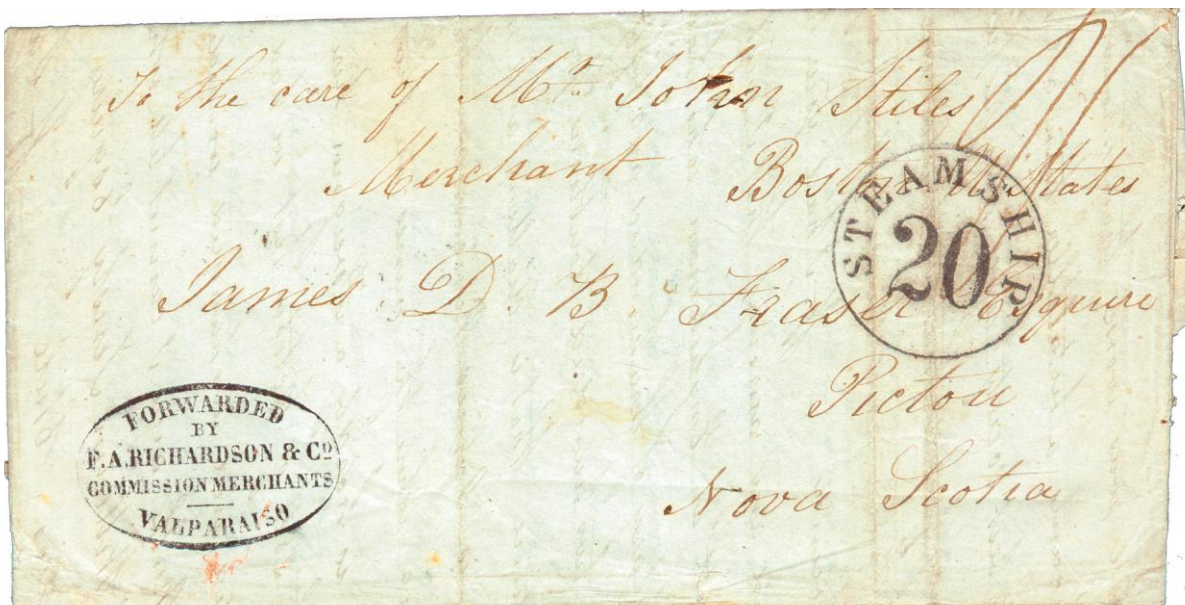 To the care of Mr. John Stiles
Merchant Boston U. States
STEAMSHIP
20
James D. B. Fraser Esquire
Pictou
Nova Scotia
FORWARDED
BY
F.A. RICHARDSON & Co
COMMISSION MERCHANTS
VALPARAISO